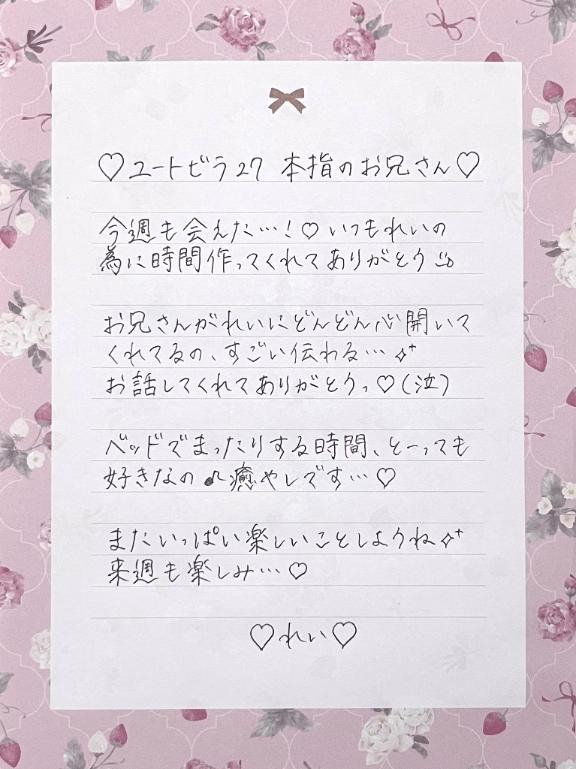 ♡ユートピラ27 本指のお兄さん♡
今週も会えた…!♡いつもれいの
為に時間作ってくれてありがとう
お兄さんがれいにどんどん心開いて
くれてるの、すごい伝わる…✧⁺
お話してくれてありがとうっ♡(泣)
ベッドでまったりする時間、とーっても
好きなの♪癒やしです…♡
またいっぱい楽しいことしようね✧⁺
来週も楽しみ…♡
♡れい♡